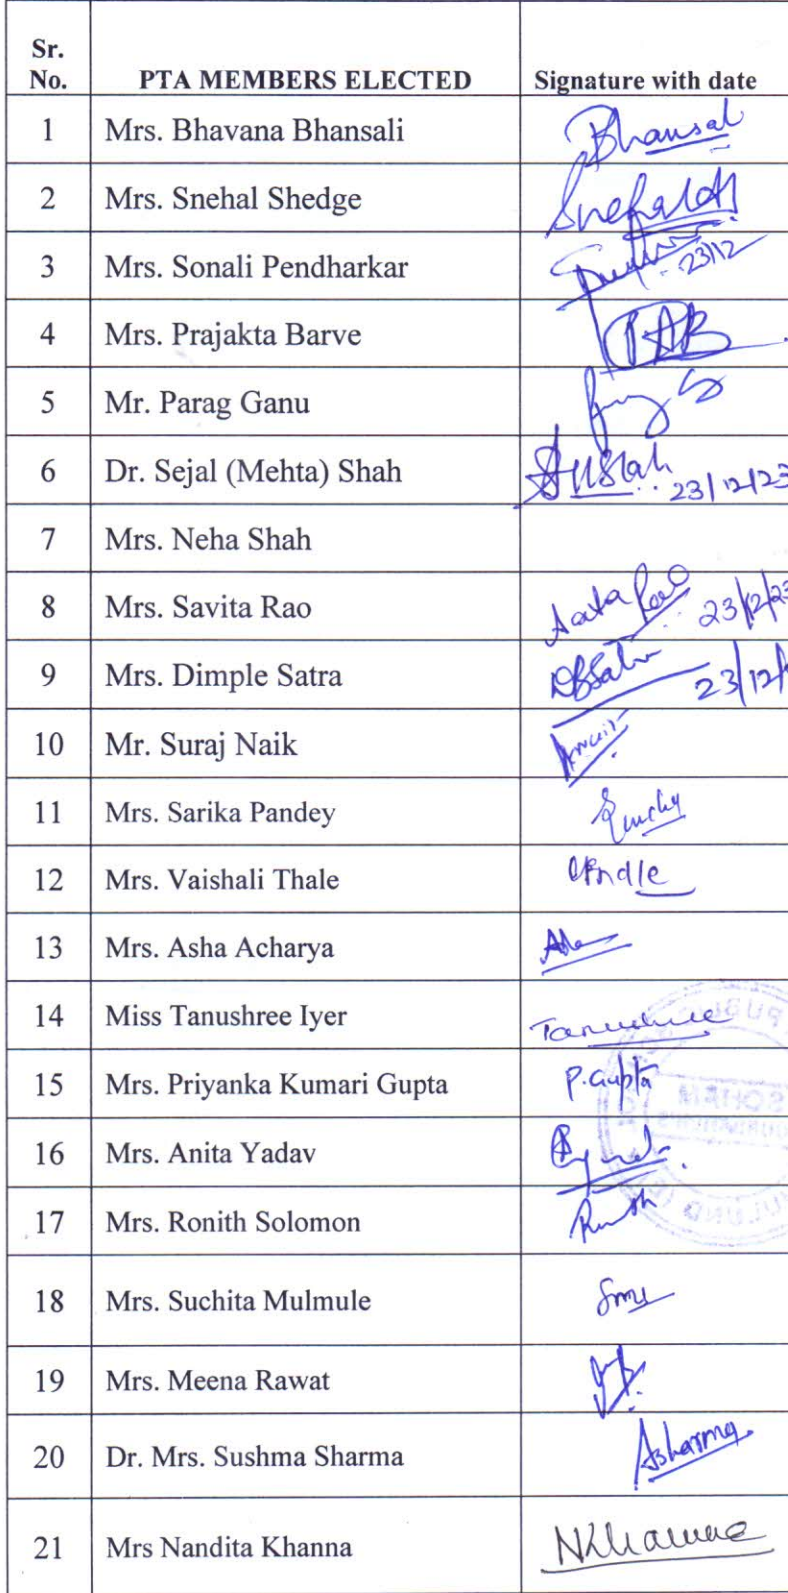 Sr. No. PTA MEMBERS ELECTED Signature with date
1 Mrs. Bhavana Bhansali Bhansal
2 Mrs. Snehal Shedge
3 Mrs. Sonali Pendharkar 23/12
4 Mrs. Prajakta Barve PAB
5 Mr. Parag Ganu
6 Dr. Sejal (Mehta) Shah 23/12/23
7 Mrs. Neha Shah
8 Mrs. Savita Rao Rao 23/12/23
9 Mrs. Dimple Satra 23/12/
10 Mr. Suraj Naik
11 Mrs. Sarika Pandey
12 Mrs. Vaishali Thale
13 Mrs. Asha Acharya
14 Miss Tanushree Iyer Tanushree
15 Mrs. Priyanka Kumari Gupta P. Gupta
16 Mrs. Anita Yadav
17 Mrs. Ronith Solomon
18 Mrs. Suchita Mulmule
19 Mrs. Meena Rawat
20 Dr. Mrs. Sushma Sharma Asharma
21 Mrs Nandita Khanna NKhanna